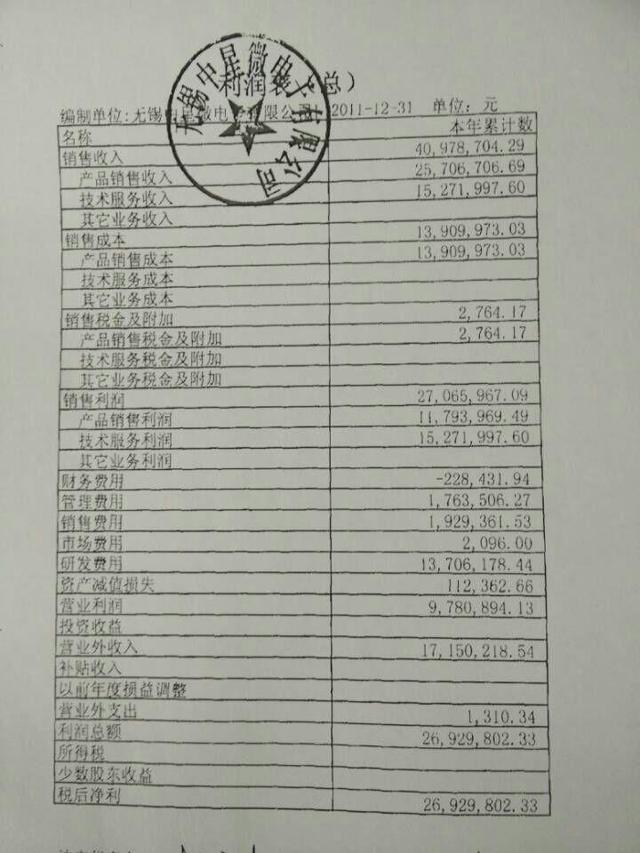 利润表（总）
无锡中星微电子有限公司
编制单位:无锡中星微电子有限公司 2011-12-31 单位：元
名称 本年累计数
销售收入 40,978,704.29
产品销售收入 25,706,706.69
技术服务收入 15,271,997.60
其它业务收入
销售成本 13,909,973.03
产品销售成本 13,909,973.03
技术服务成本
其它业务成本
销售税金及附加 2,764.17
产品销售税金及附加 2,764.17
技术服务税金及附加
其它业务税金及附加
销售利润 27,065,967.09
产品销售利润 11,793,969.49
技术服务利润 15,271,997.60
其它业务利润
财务费用 -228,431.94
管理费用 1,763,506.27
销售费用 1,929,361.53
市场费用 2,096.00
研发费用 13,706,178.44
资产减值损失 112,362.66
营业利润 9,780,894.13
投资收益
营业外收入 17,150,218.54
补贴收入
以前年度损益调整
营业外支出 1,310.34
利润总额 26,929,802.33
所得税
少数股东收益
税后净利 26,929,802.33